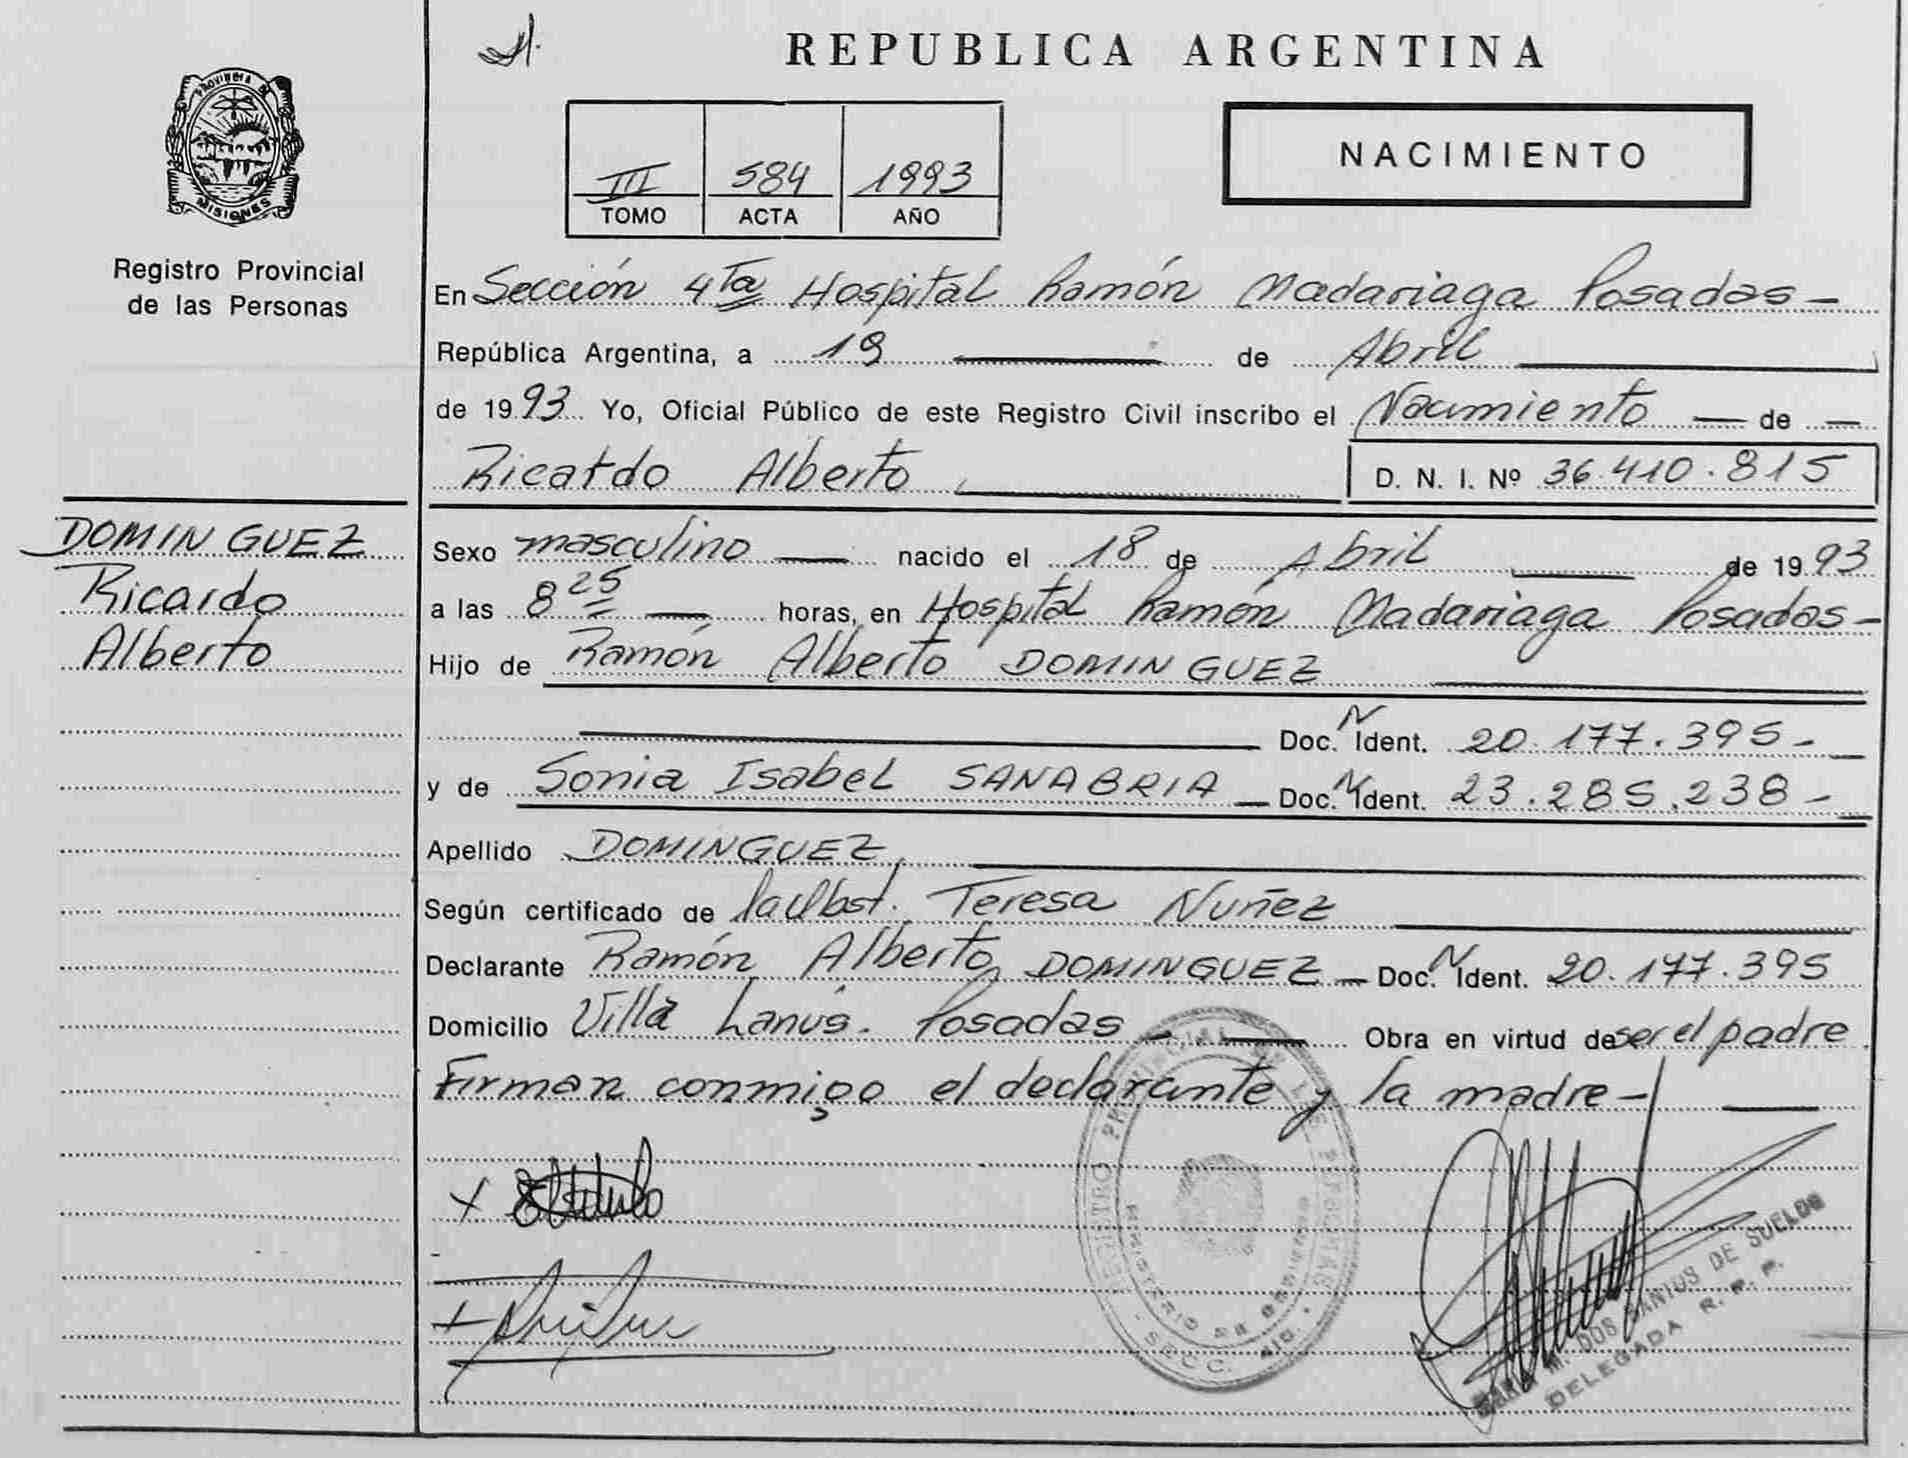 REPUBLICA ARGENTINA
PROVINCIA DE
MISIONES
Registro Provincial
de las Personas
III 584 1993
TOMO ACTA AÑO
NACIMIENTO
En Sección 4ta Hospital Ramón Madariaga Posadas-
República Argentina, a 19 de Abril
de 1993 Yo, Oficial Público de este Registro Civil inscribo el Nacimiento de
Ricardo Alberto D. N. I. Nº 36.410.815
DOMINGUEZ
Ricardo
Alberto
Sexo masculino nacido el 18 de Abril de 1993
a las 8 25 horas, en Hospital Ramón Madariaga Posadas-
Hijo de Ramón Alberto DOMINGUEZ
Doc. N Ident. 20.177.395-
y de Sonia Isabel SANABRIA Doc. N Ident. 23.285.238-
Apellido DOMINGUEZ
Según certificado de la Obst. Teresa Nuñez
Declarante Ramón Alberto DOMINGUEZ Doc. N Ident. 20.177.395
Domicilio Villa Lanús. Posadas- Obra en virtud de ser el padre.
Firman conmigo el declarante y la madre-
REGISTRO PROVINCIAL DE LAS PERSONAS
MINISTERIO DE GOBIERNO
SECC. 4ta.
M. DOS SANTOS DE SUELDO
DELEGADA R. P. P.